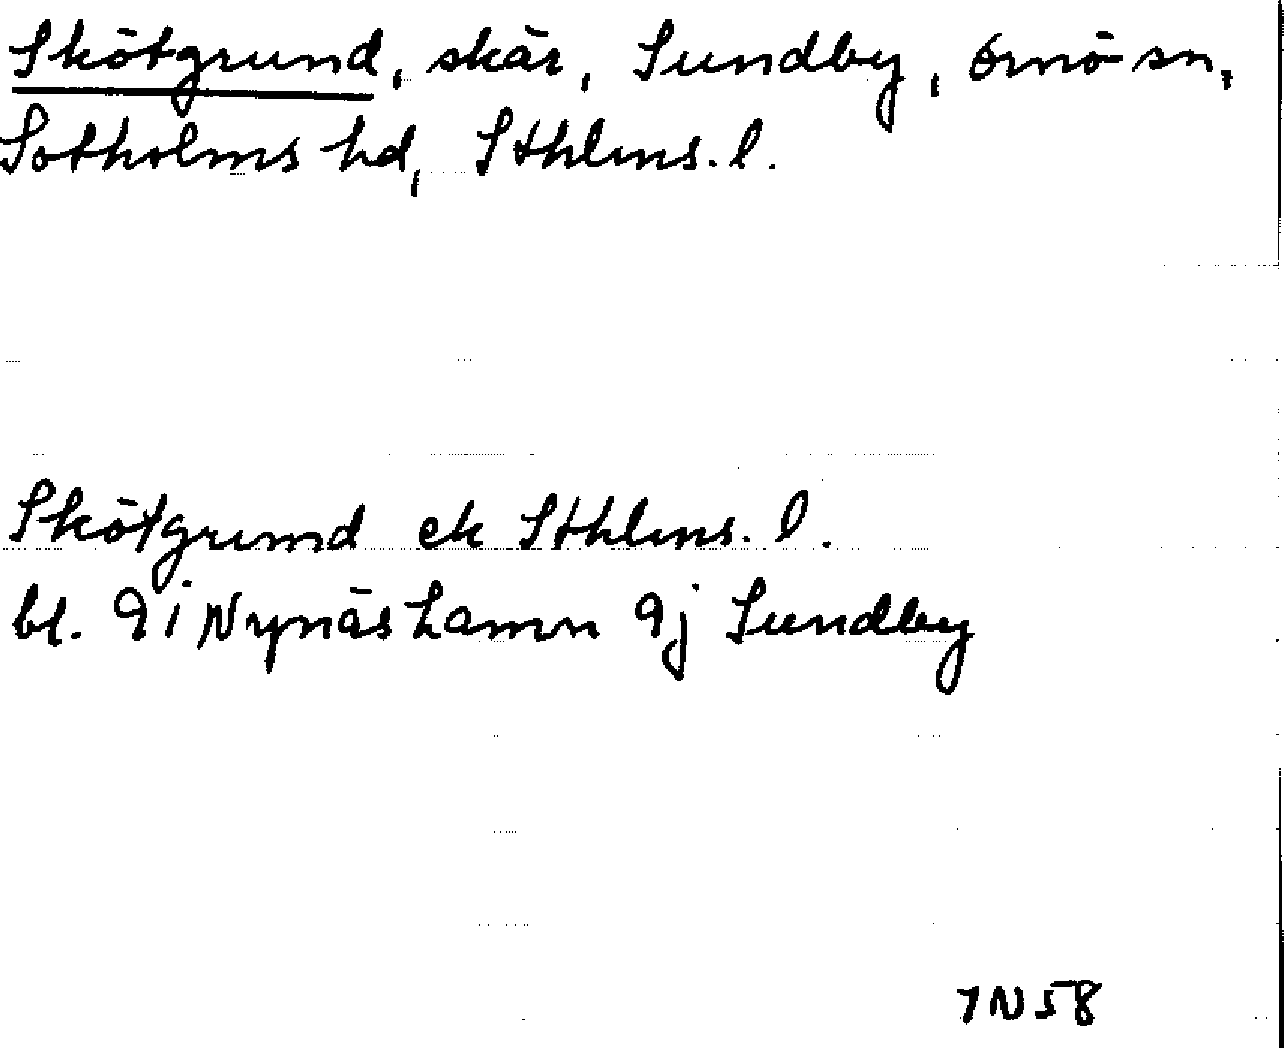 Skötgrund, skär, Sundby, Ornö sn,
Sotholms hd, Sthlms. l.
Skötgrund ek Sthlms. l.
bl. 9i Nynäshamn 9j Sundby
7N58